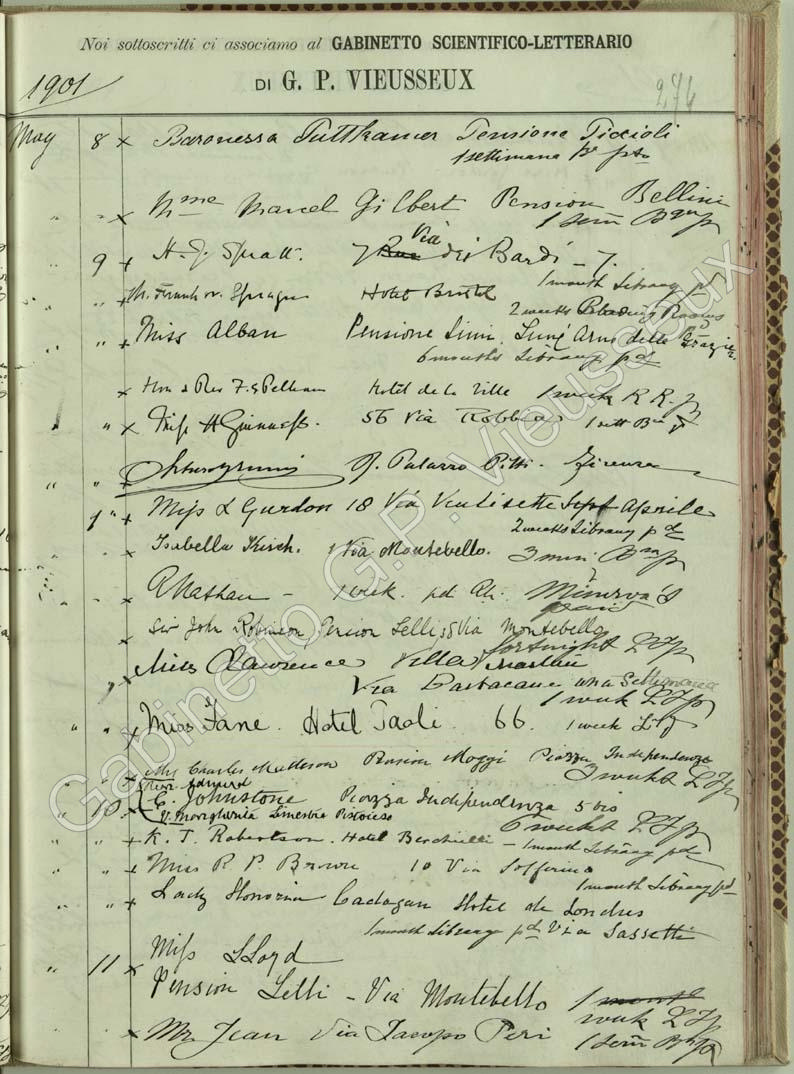 Noi sottoscritti ci associamo al GABINETTO SCIENTIFICO-LETTERARIO
DI G. P. VIEUSSEUX
1901
274
May 8 x Baronessa Puttkamer Pensione Picioli
1 settimana
" " x Mme Marcel Gilbert Pension Bellini
1 sem
9 x H. J. Spratt. 7 Via dei Bardi - 7.
1 month Library pd
" x Sprague Hotel Bristol
2 weeks Reading Rooms
" x Miss Alban Pensione Simi. Lung Arno delle Grazie
6 months Library pd
" x Hon & Rev Pelham Hotel de la Ville 1 week R R.
" " x Miss H Guinness. 56 Via Robbia 1 sett
" " R. Palazzo Pitti. Firenze
9 " x Miss L Gurdon 18 Via Ventisette Sept Aprile
2 weeks Library pd
" x Isabella Kirsch. 1 Via Montebello. 3 mesi
" x A Nathan - 1 week. pd Minerva's
paid
x Sir John Robinson Pension Lelli 55 Via Montebello
fortnight
" x Miss Lawrence Villa
Via Barbacane
1 week
" " x Miss Fane. Hotel Paoli. 66. 1 week
" " x Charles Matteson Pension Moggi Piazza Indipendenza
3 weeks
" 10 x E. Johnstone Piazza Indipendenza 5 bis
V. Margherita Ginestra Pistoiese 6 weeks
" " x K. T. Robertson. Hotel Berchielli - 1 month Library pd
" " x Miss R P. Brown 10 Via Solferino
1 month Library pd
" " x Lady Honoria Cadogan Hotel de Londres
1 month Library pd Via Sassetti
" 11 x Miss Lloyd
Pension Lelli - Via Montebello 1 month
week
" x Mr Jean Via Jacopo Peri 1 sem
Gabinetto G.P. Vieusseux